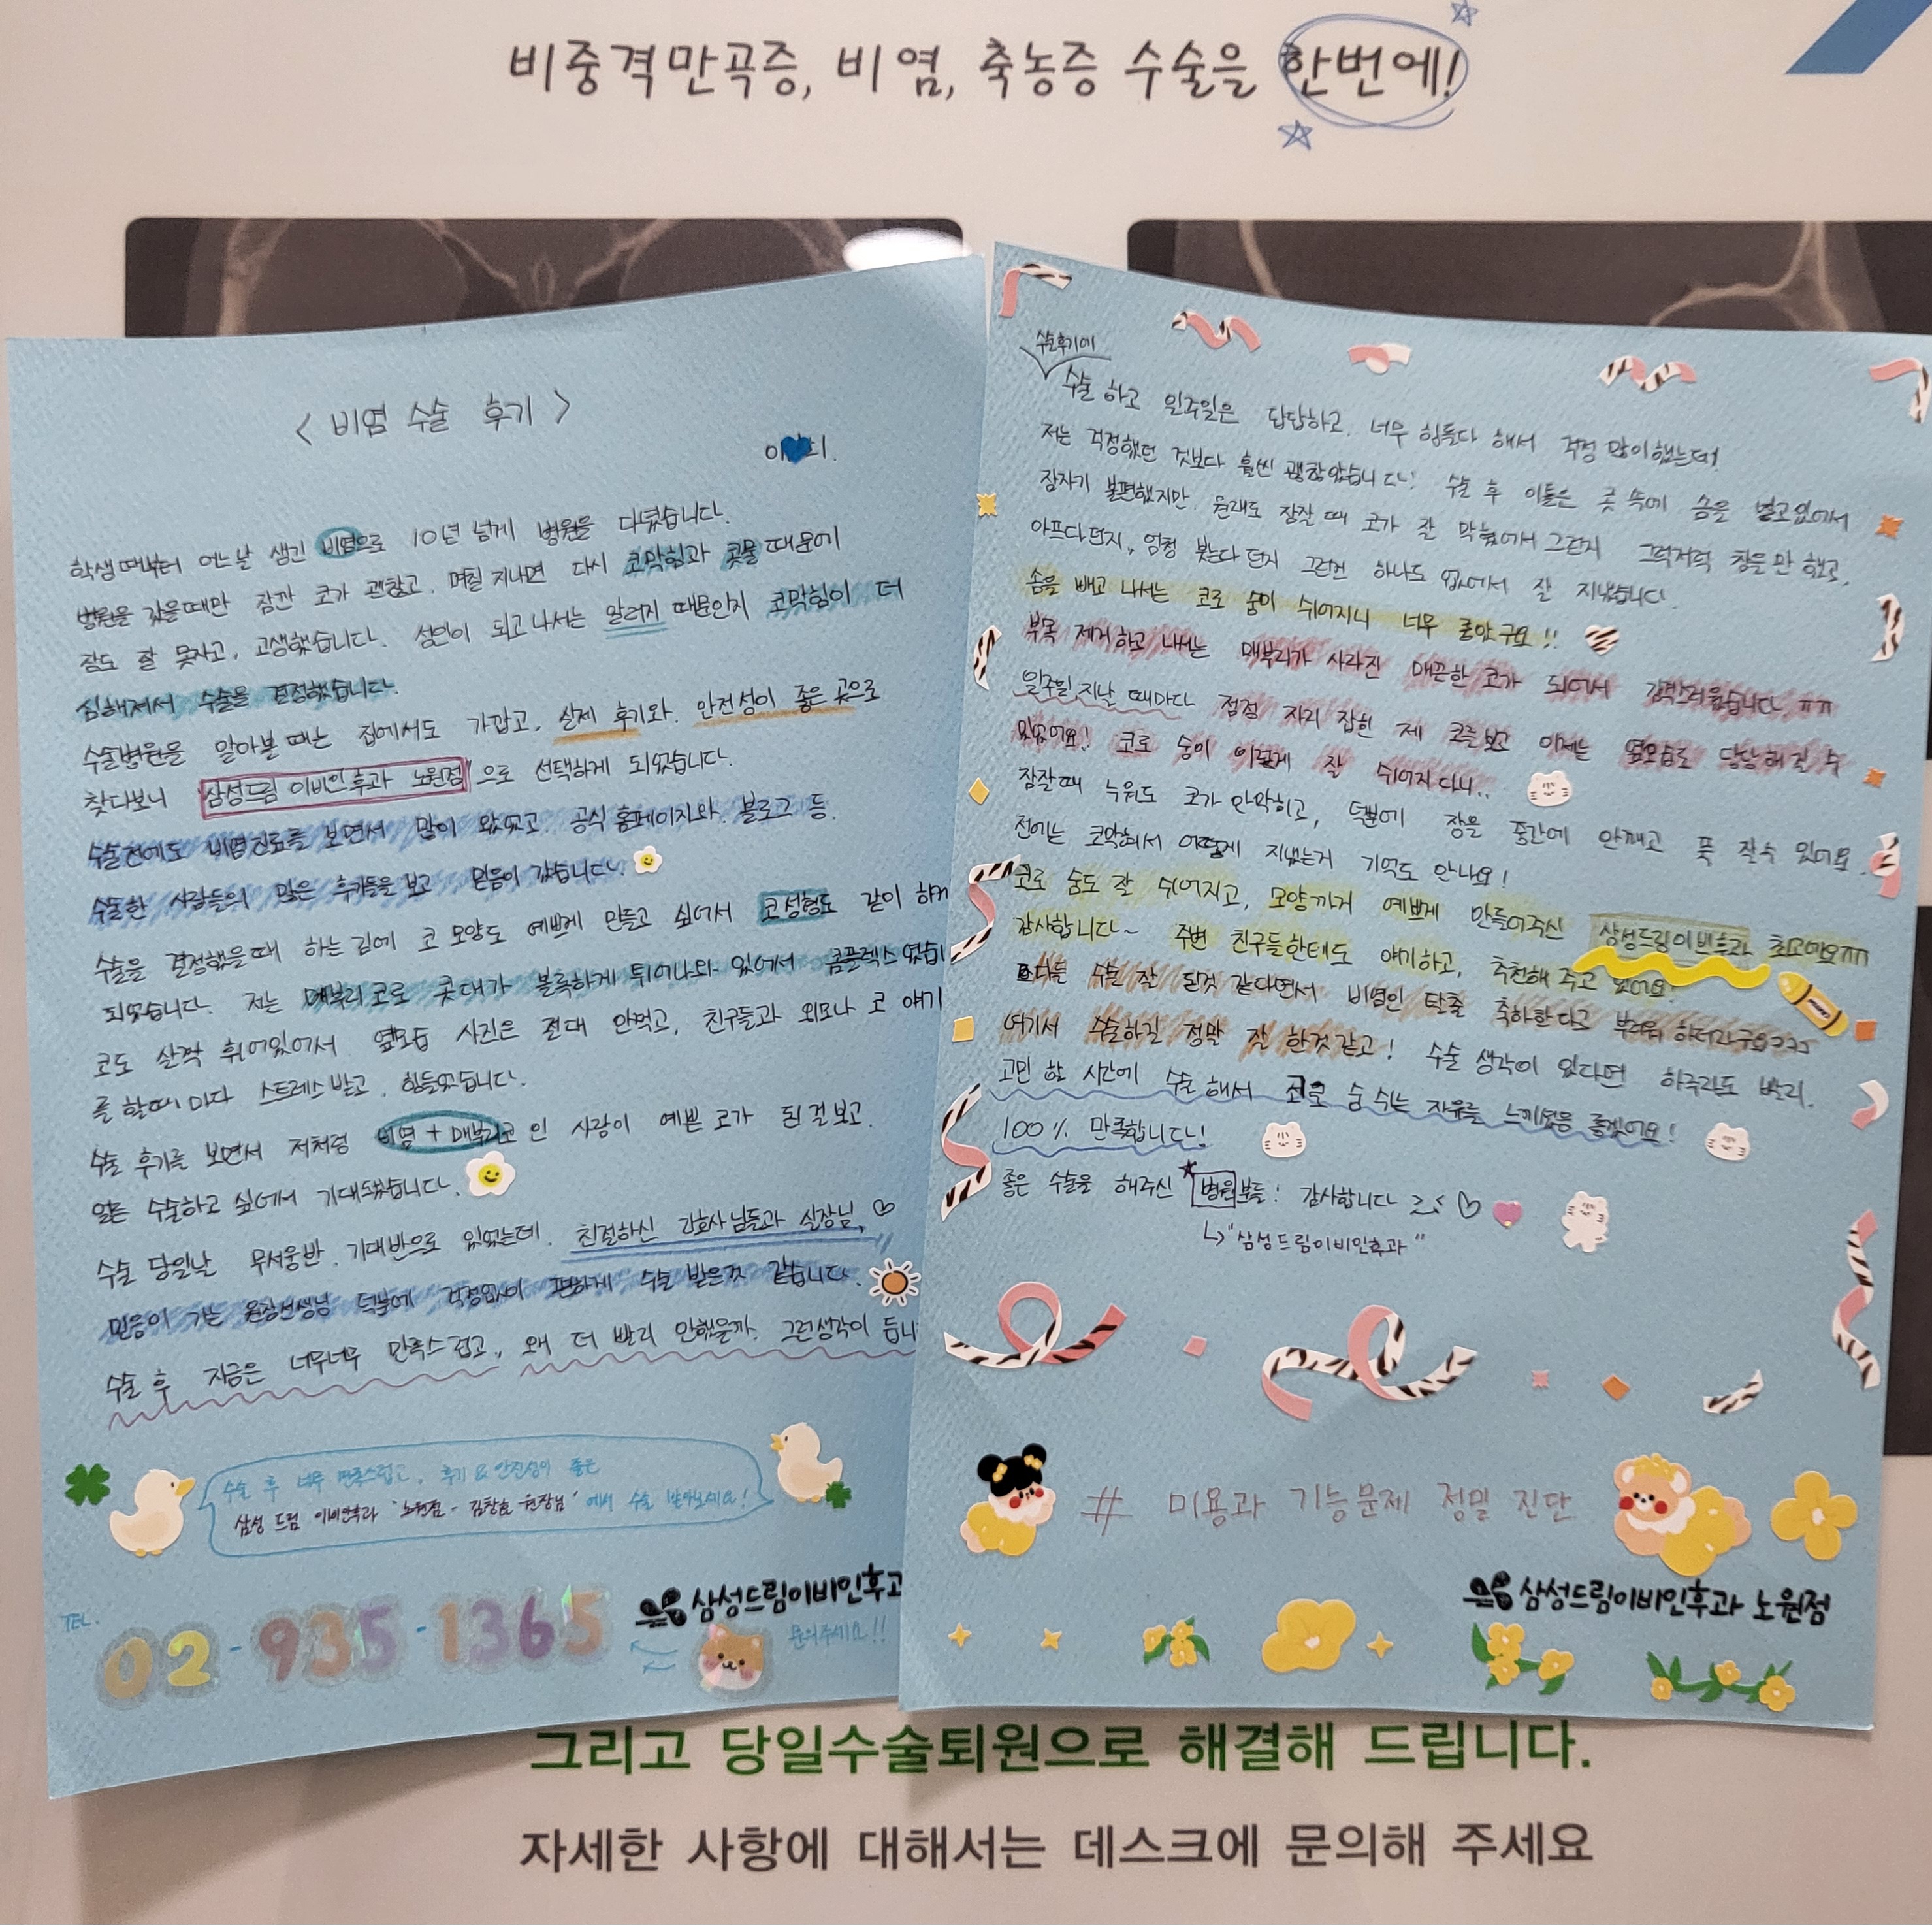 비중격만곡증, 비염, 축농증 수술을 한번에!
< 비염 수술 후기 >
학생때부터 어느날 생긴 비염으로 10년 넘게 병원을 다녔습니다.
병원을 갔을때만 잠깐 코가 괜찮고, 며칠 지나면 다시 코막힘과 콧물 때문에
잠도 잘 못자고, 고생했습니다. 성인이 되고 나서는 알러지 때문인지 코막힘이 더
심해져서 수술을 결정했습니다.
수술병원을 알아볼 때는 집에서도 가깝고, 실제 후기와 안전성이 좋은 곳으로
찾다보니 '삼성드림 이비인후과 노원점'으로 선택하게 되었습니다.
수술전에도 비염진료를 보면서 많이 왔었고 공식 홈페이지와 블로그 등.
수술한 사람들의 많은 후기들을 보고 믿음이 갔습니다.
수술을 결정했을때 하는김에 코 모양도 예쁘게 만들고 싶어서 코성형도 같이 하게
되었습니다. 저는 매부리코로 콧대가 볼록하게 튀어나와 있어서 콤플렉스였습니
코도 살짝 휘어있어서 옆모습 사진은 절대 안찍고, 친구들과 외모나 코 얘기
를 할때마다 스트레스받고, 힘들었습니다.
수술 후기를 보면서 저처럼 비염+매부리코인 사람이 예쁜 코가 된걸보고.
얼른 수술하고 싶어서 기대되었습니다.
수술 당일날 무서움반, 기대반으로 있었는데. 친절하신 간호사님들과 실장님,♡
믿음이 가는 원장선생님 덕분에 걱정없이 편하게 수술 받은것 같습니다.
수술 후 지금은 너무너무 만족스럽고, 왜 더 빨리 안했을까. 그런생각이 듭니
수술 후 너무 만족스럽고, 후기&안전성이 좋은
삼성 드림 이비인후과 '노원점 - 김창효 원장님' 에서 수술 받아보세요!
TEL.
02-935-1365
삼성드림이비인후고
문의주세요!!
수술후기에
수술 하고 일주일은 답답하고, 너무 힘들다 해서 걱정 많이했는데,
저는 걱정했던 것보다 훨씬 괜찮았습니다! 수술 후 이틀은 콧속에 솜을 넣고있어서
잠자기 불편했지만, 원래도 잠잘 때 코가 잘 막혔어서 그런지 그럭저럭 참을만 했고,
아프다던지, 엄청 붓는다던지 그런건 하나도 없어서 잘 지냈습니다.
솜을 빼고 나서는 코로 숨이 쉬어지니 너무 좋았구요!!
부목 제거하고 나서는 매부리가 사라진 매끈한 코가 되어서 감격스러웠습니다 ㅠㅠ
일주일 지날 때마다 점점 자리 잡힌 제 코를 보고 이제는 옆모습도 당당해질 수
있었어요! 코로 숨이 이렇게 잘 쉬어지다니..
잠잘때 누워도 코가 안막히고, 덕분에 잠을 중간에 안깨고 푹 잘수 있어요.
전에는 코막혀서 어떻게 지냈는지 기억도 안나요!
코로 숨도 잘 쉬어지고, 모양까지 예쁘게 만들어주신 삼성드림이비후과 최고예요ㅠㅠ
감사합니다~ 주변 친구들한테도 얘기하고, 추천해 주고 있어요!
모두들 수술 잘 된것 같다면서 비염인 탈출 축하한다고 부러워 하더라구요ㅋㅋㅋ
여기서 수술하길 정말 잘 한것같고! 수술 생각이 있다면 하루라도 빨리.
고민 할 시간에 수술해서 코로 숨 쉬는 자유를 느끼셨음 좋겠어요!
100% 만족합니다!
좋은 수술을 해주신 병원분들! 감사합니다 ♡
"삼성드림이비인후과"
# 미용과 기능문제 정밀 진단
삼성드림이비인후과 노원점
그리고 당일수술퇴원으로 해결해 드립니다.
자세한 사항에 대해서는 데스크에 문의해 주세요